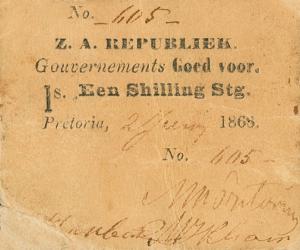 No. 605
Z. A. REPUBLIEK.
Gouvernements Goed voor.
1s. Een Shilling Stg.
Pretoria, 2 1868.
No. 605